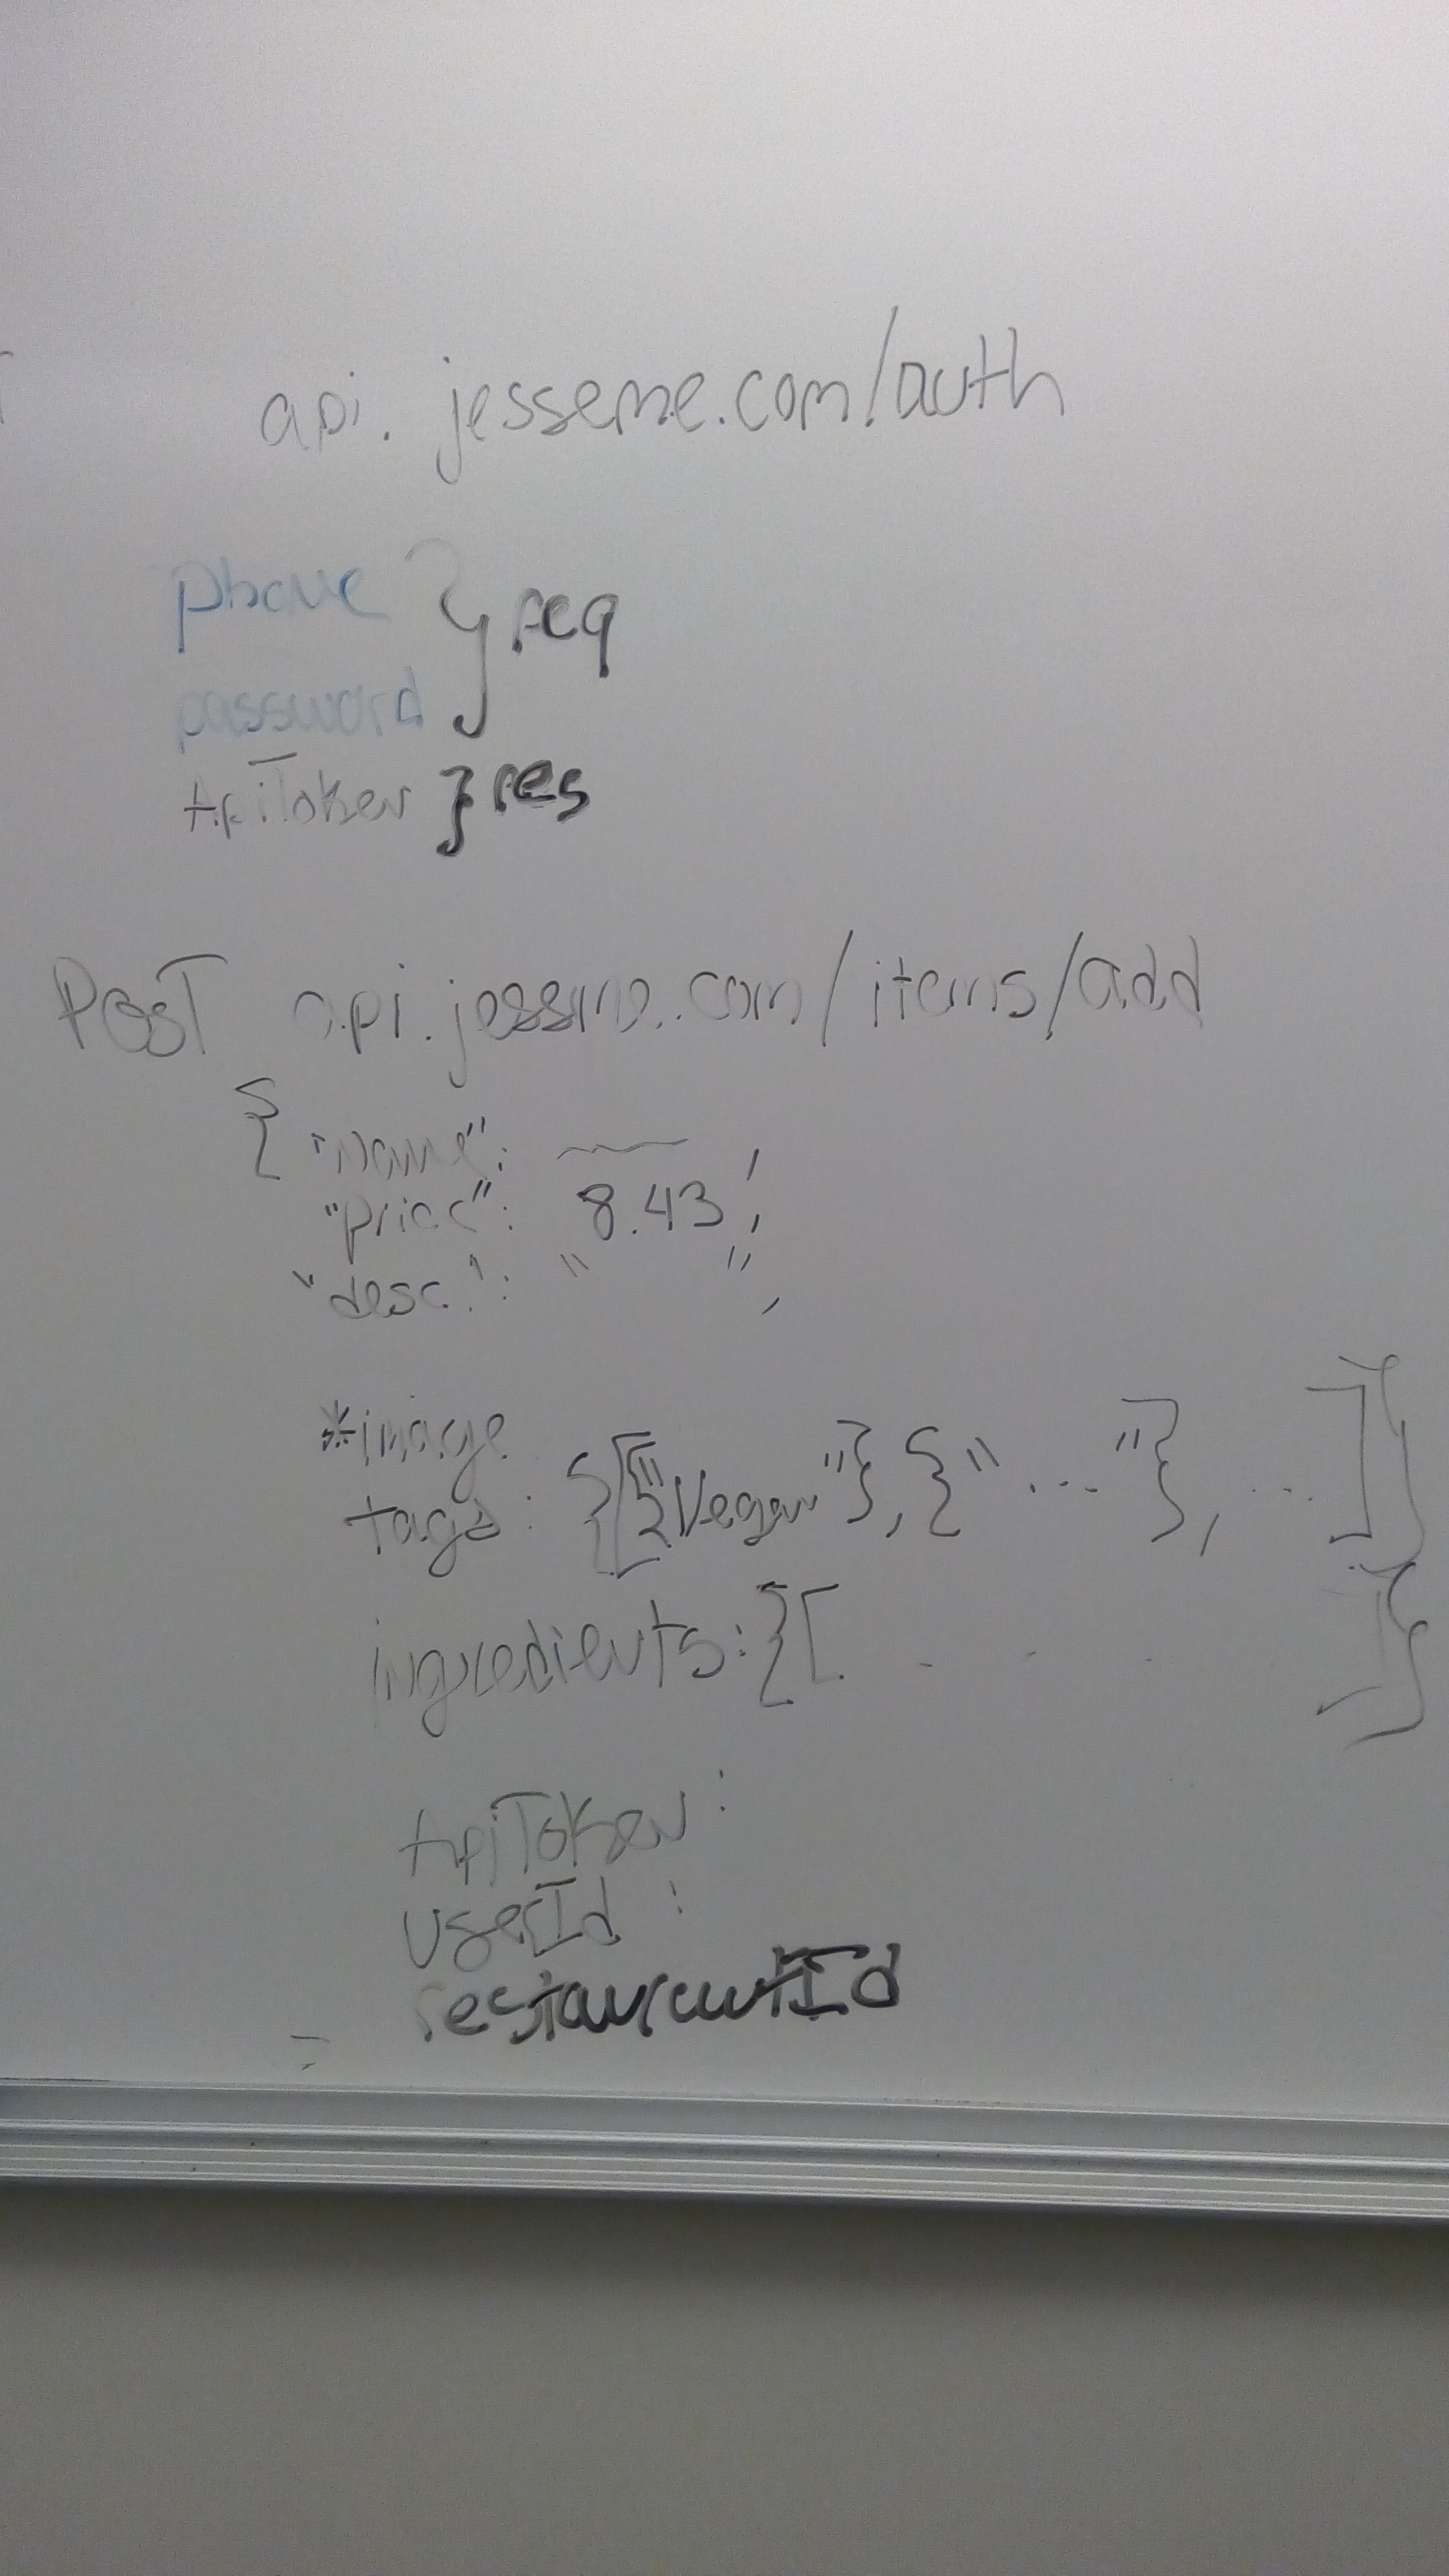 api.jesseme.com/auth
phone } req
password
ApiToken } res
POST api.jesseme.com/items/add
{ "name": ,
"price": 8.43,
"desc.": " ",
*image
tags: {[{"Vegan"}, {"..."}, ...]}
ingredients: {[. . . .]}
ApiToken:
userId:
restaurantId